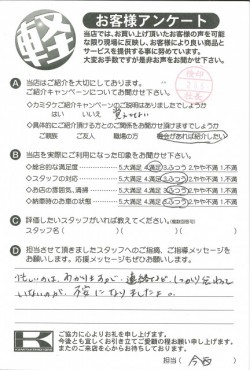 軽 お客様アンケート
当店では、お買い上げ頂いたお客様の声を可能
な限り現場に反映し、お客様により良い商品と
サービスを提供する事に努めています。
大変お手数ですが是非お声をお聞かせ下さい。
A 当店はご紹介を大切にしております。
ご紹介キャンペーンについてお聞かせ下さい。
◇カミタケご紹介キャンペーンのご説明はありましたでしょうか
はい いいえ 覚えてない
◇具体的にご紹介頂ける方とのご関係をお聞かせ頂けますでしょうか
ご親族 ご友人 職場の方 機会があれば紹介したい
B 当店を実際にご利用になった印象をお聞かせ下さい。
◇総合的な満足度 5.大満足 4.満足 3.ふつう 2.やや不満 1.不満
◇スタッフの対応 5.大満足 4.満足 3.ふつう 2.やや不満 1.不満
◇お店の雰囲気、清掃 5.大満足 4.満足 3.ふつう 2.やや不満 1.不満
◇納車時のお車の状態 5.大満足 4.満足 3.ふつう 2.やや不満 1.不満
C 評価したいスタッフがいれば教えてください。(複数回答可)
スタッフ名( )( )
D 担当させて頂きましたスタッフへのご指摘、ご指導メッセージを
お願いします。応援メッセージもぜひお願いします。
忙しいのは、わかりますが、連絡などが、しっかり伝わって
いないのが、不安になりましたよ。
K
ご協力に心よりお礼を申し上げます。
今後とも宜しくお引き立てご愛顧の程お願い申し上げます。
またのご来店を心からお待ちしております。
担当( 今西 )